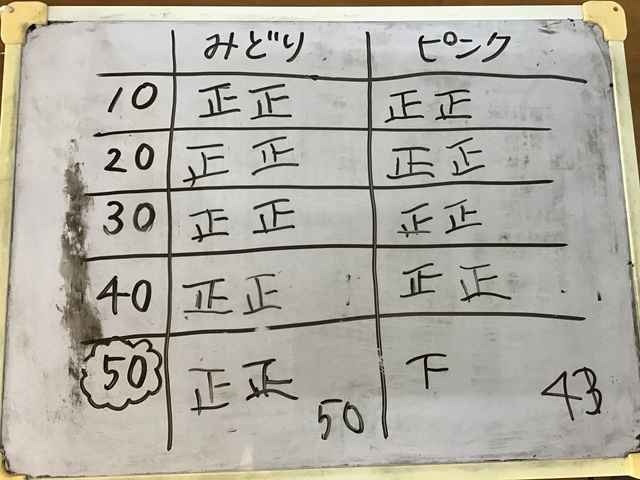 みどり ピンク
10 正正 正正
20 正正 正正
30 正正 正正
40 正正 正正
50 正正 50 下 43